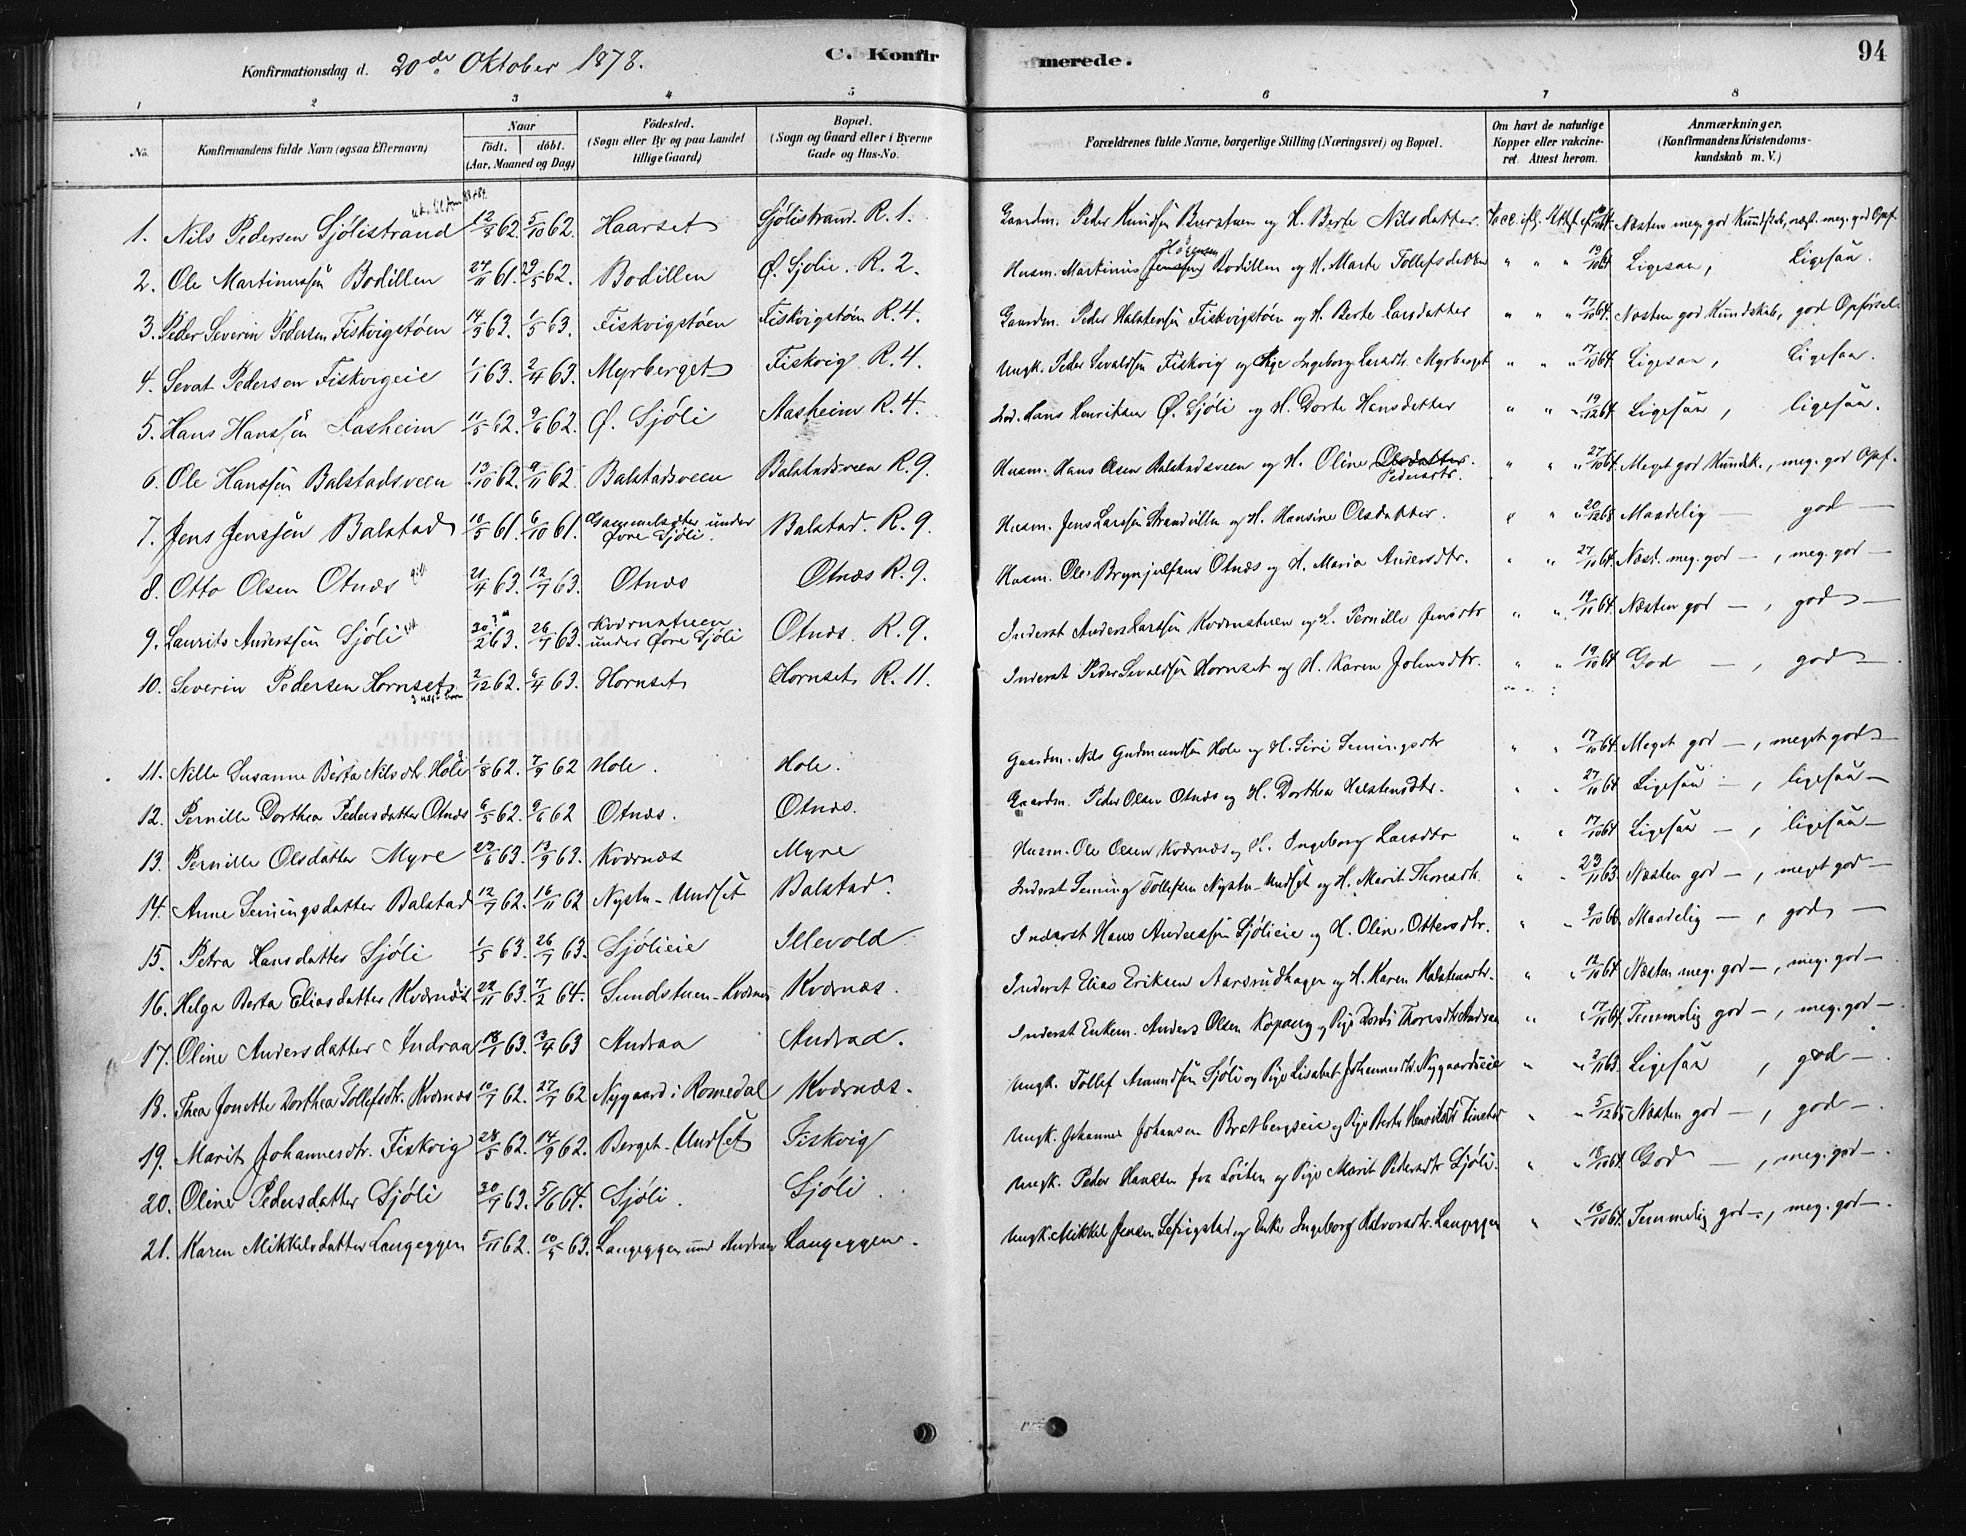 Konfirmationsdag d. 20de Oktober 1878. C. Konfirmerede. 94
1 2 3 4 5 6 7 8
No. Konfirmandens fulde Navn (ogsaa Efternavn) Naar födt. döbt. (Aar, Maaned og Dag) Födested. (Sogn eller By og paa Landet tillige Gaard) Bopæl. (Sogn og Gaard eller i Byerne Gade og Hus-No. Forældrenes fulde Navne, borgerlige Stilling (Næringsvei) og Bopæl. Om havt de naturlige Kopper eller vakcineret. Attest herom. Anmærkninger. (Konfirmandens Kristendomskundskab m. V.)
1. Nils Pedersen Sjölistrand 12/8 62. 5/10 62. Haarset Sjölistrand R. 1. Gaardm. Peder Knudsen Burstuen og H. Berte Nilsdatter. Næsten meg. god Kundskab, næst. meg. god Opf.
2. Ole Martinussen Bodillen 27/11 61. 29/5 62. Bodillen Ø. Sjölie. R. 2. Husm. Martinus Bodillen og H. Marte Tollefsdatter " " " 19/10 64. Ligesaa, Ligesaa.
3. Peder Severin Pedersen Fiskvigstöen 14/3 63. 1/5 63. Fiskvigstöen Fiskvigstöen R. 4. Gaardm. Peder Halstensen Fiskvigstöen og H. Berte Larsdatter " " " 17/10 64. Næsten god Kundskab, god Opförsel
4. Sevat Pedersen Fiskvigeie 1/1 63. 2/4 63. Myrberget Fiskvig R. 4. Ungk. Peder Sevaldsen Fiskvig og Pige Ingeborg Larsdtr. Myrberget " " " 17/10 64. Ligesaa, ligesaa.
5. Hans Hanssen Aasheim 11/5 62. 9/6 62. Ø. Sjöli Aasheim R. 4. Ind. Hans Henriksen Ø. Sjöli og H. Dorte Hansdatter " " " 19/12 64. Ligesaa, ligesaa.
6. Ole Hanssen Balstadsveen 13/10 62. 9/11 62. Balstadsveen Balstadsveen R. 9. Husm. Hans Olsen Balstadsveen og H. Oline Olsdatter. Pedersdtr. " " " 27/10 64. Meget god Kundsk., meg. god Opf.
7. Jens Jenssen Balstad 10/5 61. 6/10 61. Gammelsæter under Övre Sjöli. Balstad. R. 9. Husm. Jens Larssen Strandvilla og H. Hansine Olsdatter. " " " 20/12 68. Maadelig — god —
8. Otto Olsen Otnæs 21/4 63. 12/7 63. Otnæs Otnæs R. 9. Husm. Ole Brynjulfsen Otnæs og H. Maria Andersdtr. " " " 27/10 64. Næst. meg. god —, meg. god —
9. Laurits Anderssen Sjöli 20/2 63. 26/7 63. Kværnstuen under Övre Sjöli Otnæs. R. 9. Inderst Anders Larssen Kværnstuen og H. Pernille Jensdtr " " 19/11 64. Næsten god —, god —
10. Severin Pedersen Hornset 2/12 62. 6/4 63. Hornset Hornset R. 11. Inderst Peder Sevaldsen Hornset og H. Karen Johnsdtr. " " 19/10 64. God —, god —.
11. Nille Susanne Berta Nilsdtr. Hole 1/8 62. 7/9 62 Hole. Hole. Gaardm. Nils Gudmundsen Hole og H. Siri Semingsdtr " " 17/10 64. Meget god —, meget god —
12. Pernille Dorthea Pedersdatter Otnæs 6/5 62. 9/6 62 Otnæs. Otnæs. Gaardm. Peder Olsen Otnæs og H. Dorthea Halstensdtr. " " 27/11 64. Ligesaa —, ligesaa —
13. Pernille Olsdatter Myre 23/6 63. 13/9 63. Kværnæs Myre Husm. Ole Olsen Kværnæs og H. Ingeborg Larsdtr " " 17/10 64. Ligesaa —, ligesaa —
14. Anne Semingsdatter Balstad 12/7 62. 16/11 62 Nystu-Undset Balstad. Inderst Seming Tollefsen Nystu-Undset og H. Marit Thoresdtr. " " 23/11 63. Næsten god —, meget god —
15. Petra Hansdatter Sjöli 1/5 63. 26/7 63. Sjölieie Illevold Inderst Hans Anderssen Sjölieie og H. Oline Ottersdtr. " " 9/10 66. Maadelig —, god —
16. Helga Berta Eliasdatter Kværnæs 22/11 63. 7/2 64. Sundstuen-Kværnæs Kværnæs. Inderst Elias Eriksen Aarsrudhagen og H. Karen Halstensdtr. " " 12/10 64. Næsten meg. god —, meg. god —
17. Oline Andersdatter Andraa 18/1 63. 3/4 63 Andraa Andraa. Inderst Enkem. Anders Olsen Kopang og Pige Dordi Thoresdtr. Andraa " " 17/10 64. Temmelig god —, meg. god —
18. Thea Jonette Dorthea Tollefsdtr. Kværnæs 10/7 62. 27/7 62 Nygaard i Romedal Kværnæs. Ungk. Tollef Amundsen Sjöli og Pige Lisabet Johannesdtr. Nygaardseie " " 3/11 63. Ligesaa, god —
19. Marit Johannesdtr. Fiskvig 28/5 62. 14/9 62. Berget-Undset Fiskvig Ungk. Johannes Johansen Bratbergseie og Pige Berte Henriksdtr. Finstad " " 5/12 65 Næsten god —, god —.
20. Oline Pedersdatter Sjöli 30/9 63. 5/6 64. Sjöli. Sjöli Ungk. Peder Hansen fra Löiten og Pige Marit Pedersdtr Sjöli. " " 18/10 64. God —, meg. god —.
21. Karen Mikkelsdatter Langeggen 5/11 62. 10/5 63. Langeggen und. Andraa Langeggen. Ungk. Mikkel Jensen og Enke Ingeborg Halvorsdtr. Langeggen " " 18/10 64. Temmelig god —, meg. god —.